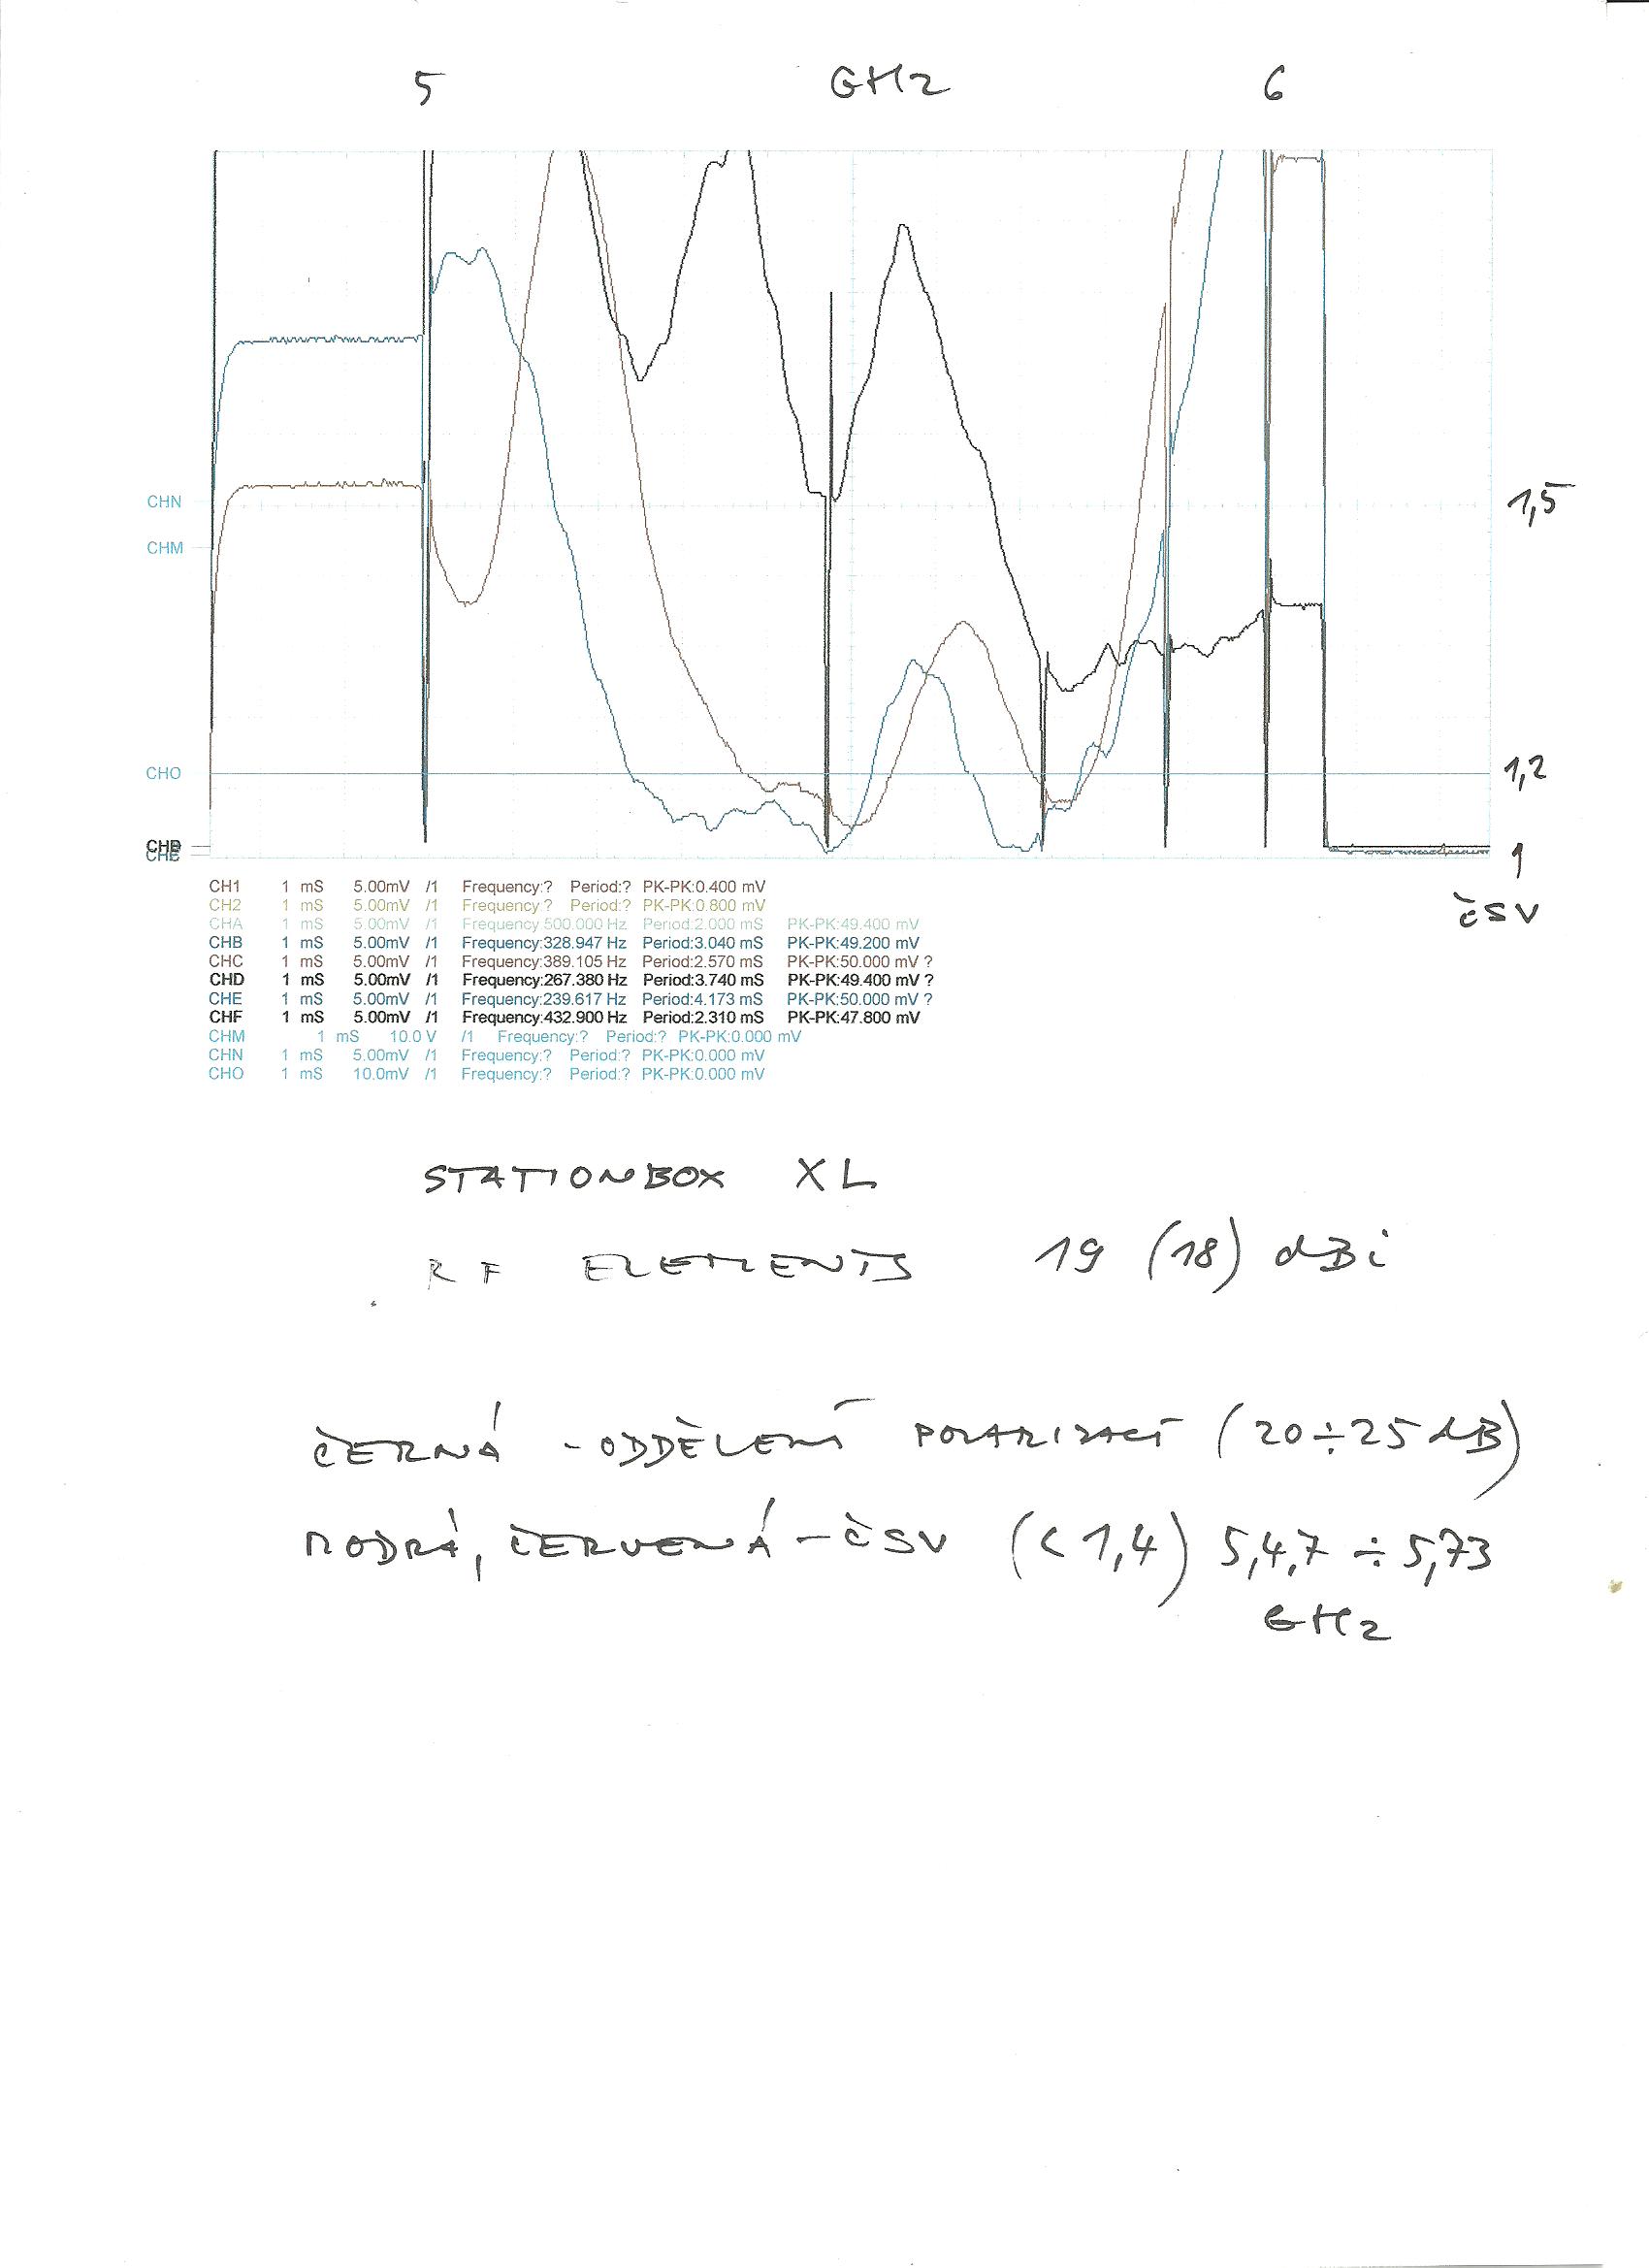 5 GHz 6
CHN
1,5
CHM
CHO
1,2
CHE
1
ČSV
CH1 1 mS 5.00mV /1 Frequency:? Period:? PK-PK:0.400 mV
CH2 1 mS 5.00mV /1 Frequency:? Period:? PK-PK:0.800 mV
CHA 1 mS 5.00mV /1 Frequency:500.000 Hz Period:2.000 mS PK-PK:49.400 mV
CHB 1 mS 5.00mV /1 Frequency:328.947 Hz Period:3.040 mS PK-PK:49.200 mV
CHC 1 mS 5.00mV /1 Frequency:389.105 Hz Period:2.570 mS PK-PK:50.000 mV ?
CHD 1 mS 5.00mV /1 Frequency:267.380 Hz Period:3.740 mS PK-PK:49.400 mV ?
CHE 1 mS 5.00mV /1 Frequency:239.617 Hz Period:4.173 mS PK-PK:50.000 mV ?
CHF 1 mS 5.00mV /1 Frequency:432.900 Hz Period:2.310 mS PK-PK:47.800 mV
CHM 1 mS 10.0 V /1 Frequency:? Period:? PK-PK:0.000 mV
CHN 1 mS 5.00mV /1 Frequency:? Period:? PK-PK:0.000 mV
CHO 1 mS 10.0mV /1 Frequency:? Period:? PK-PK:0.000 mV
STATIONBOX XL
RF ELEMENTS 19 (18) dBi
ČERNÁ - ODDĚLENÍ POLARIZACÍ (20÷25 dB)
MODRÁ, ČERVENÁ - ČSV (< 1,4) 5,4,7 ÷ 5,73
GHz